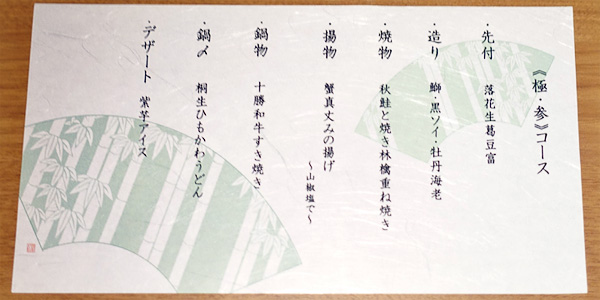 《極・参》コース
・先付　落花生葛豆富
・造り　鰤・黒ソイ・牡丹海老
・焼物　秋鮭と焼き林檎重ね焼き
・揚物　蟹真丈みの揚げ
～山椒塩で～
・鍋物　十勝和牛すき焼き
・鍋〆　桐生ひもかわうどん
・デザート　紫芋アイス